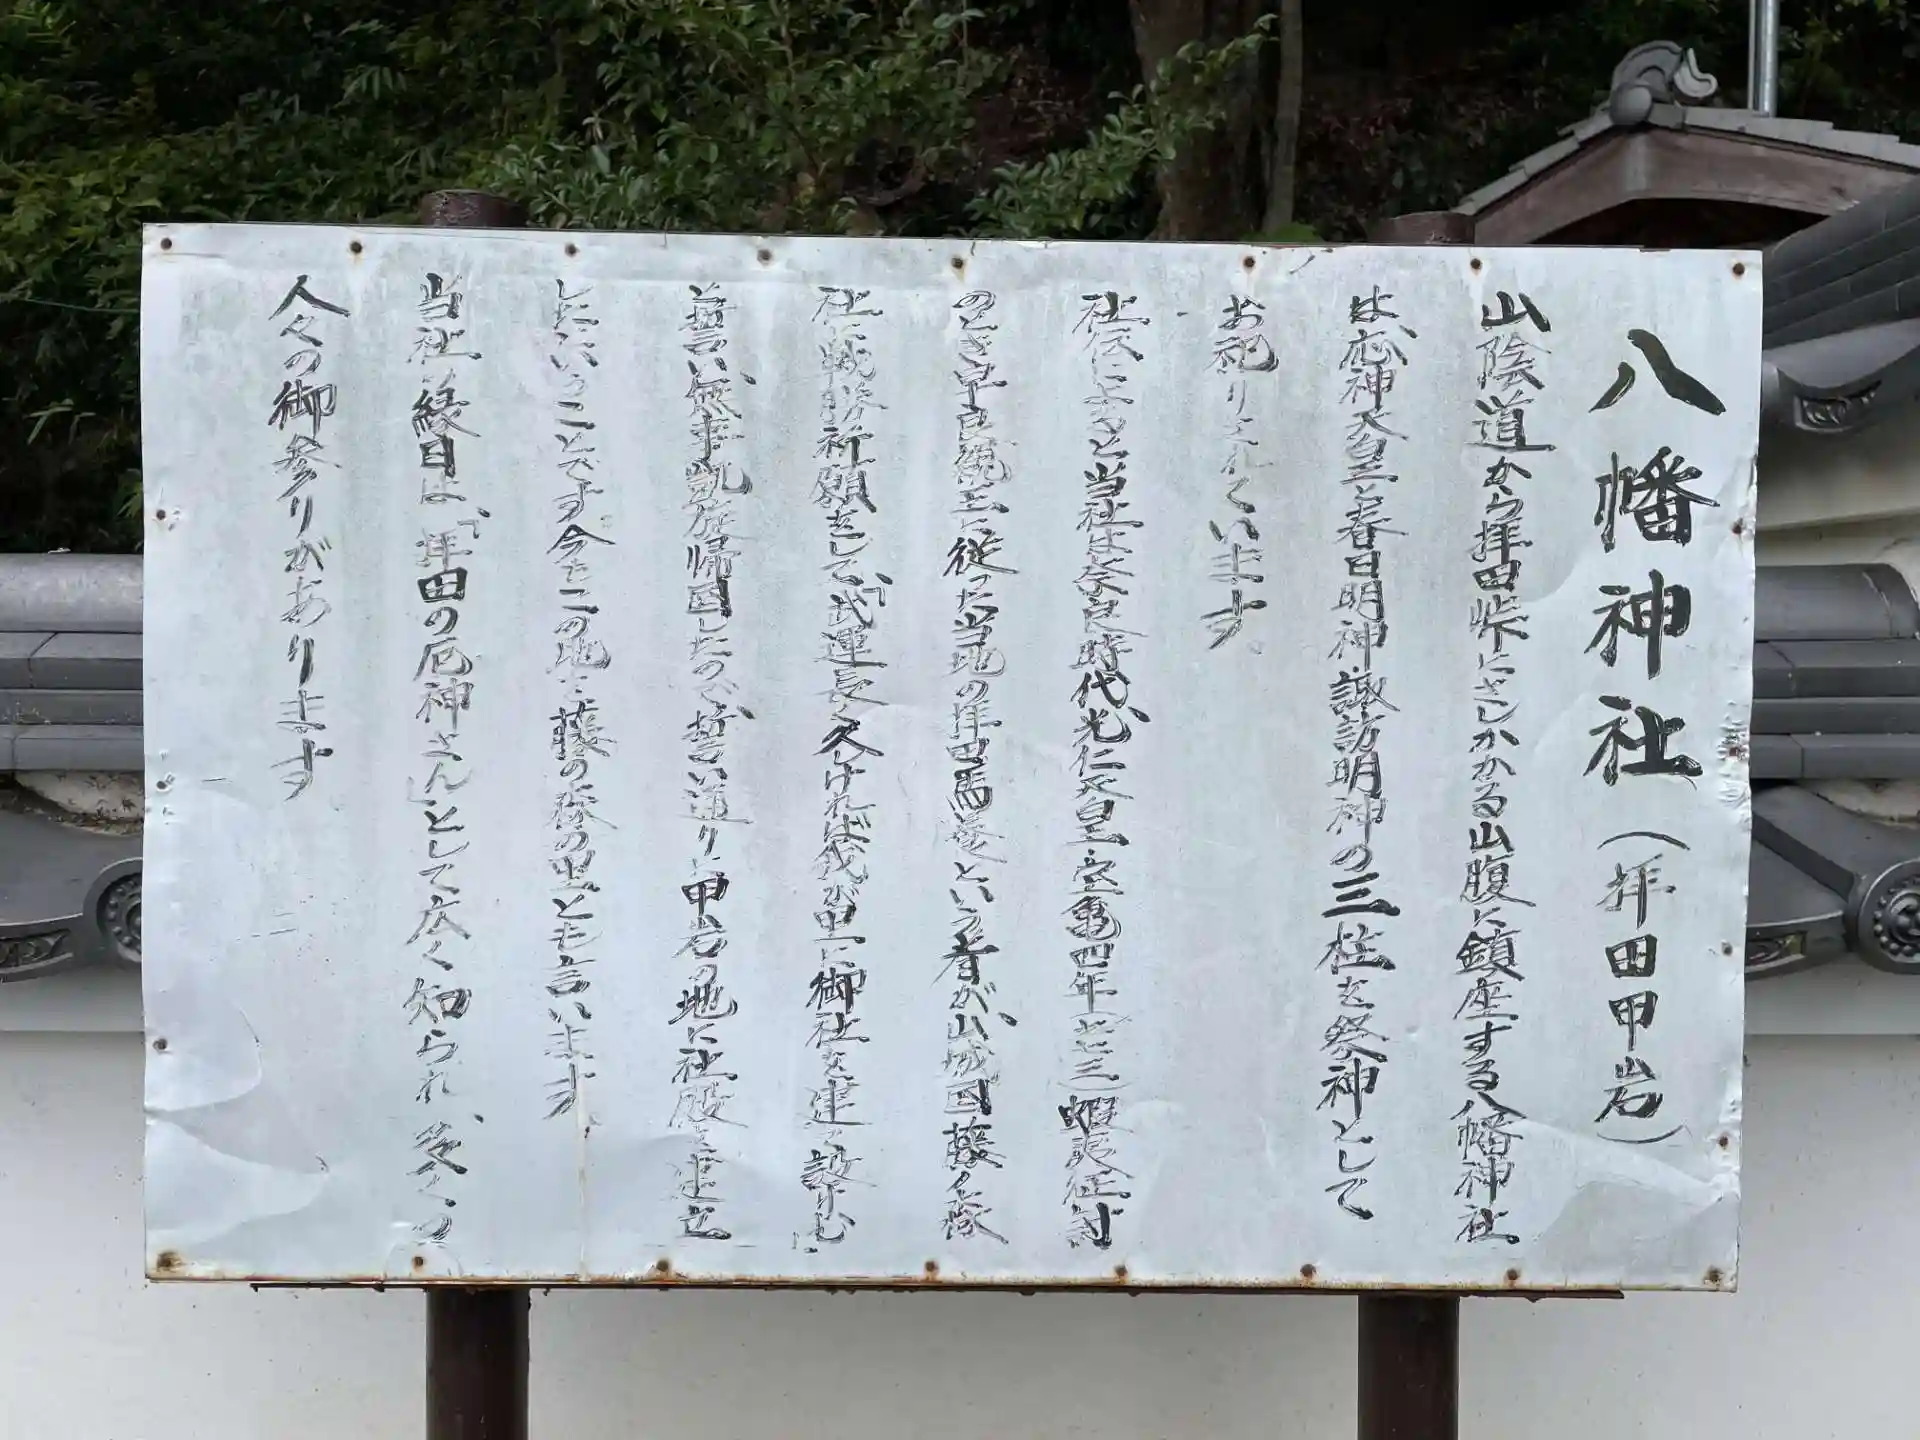 八幡神社(拝田甲岩)
山陰道から拝田峠にさしかかる山腹に鎮座する八幡神社
は、応神天皇と春日明神・諏訪明神の三柱を祭神として
お祀りされています。
社伝によると当社は、奈良時代、光仁天皇・宝亀四年(七七三)蝦夷征討
のとき早良親王に従った当地の拝田馬養という者が、山城国藤ノ森
社に戦勝祈願をして、「武運長久しければ我が里に御社を建て設けむ」
と誓い、無事凱旋帰国したので、誓い通りに甲岩の地に社殿を建立
したということです。今もこの地を藤の森の里とも言います。
当社の縁日は、「拝田の厄神さん」として広く知られ、多くの
人々の御参りがあります